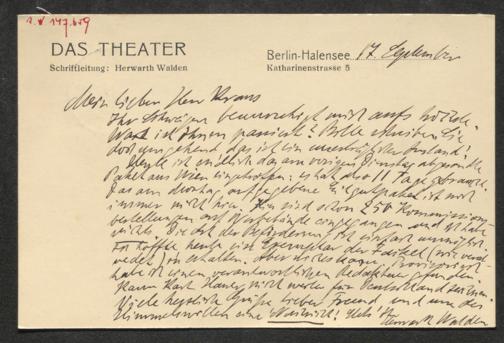 I.N 147.619
DAS THEATER
Schriftleitung: Herwarth Walden
Berlin-Halensee, 17. September
Katharinenstrasse 5
Mein lieber Herr Kraus
Ihr Schweigen beunruhigt mich aufs höchste.
Was ist Ihnen passiert? Bitte schreiben Sie
doch umgehend, das ist ein unerträglicher Zustand!
Heute ist endlich das am vorigen Dienstag abgesandte
Paket aus Wien eingetroffen: es hat also 11 Tage gebraucht.
Das am Montag aufgegebene Eilgutpaket ist noch
immer nicht hier. Nun sind schon 250 Kommissions-
bestellungen auf eingegangen und ich habe
nichts. Die Art der Beförderung ist einfach unerhört.
Ich hoffte heute ein Exemplar der Fackel
zu erhalten. Aber
habe ich einen verantwortlichen Redakteur gefunden.
Kann Karl Hauer nicht für Deutschland zeichnen.
Viele herzliche Grüße lieber Freund und um des
Himmelswillen eine Nachricht! Stets Ihr
Herwarth Walden